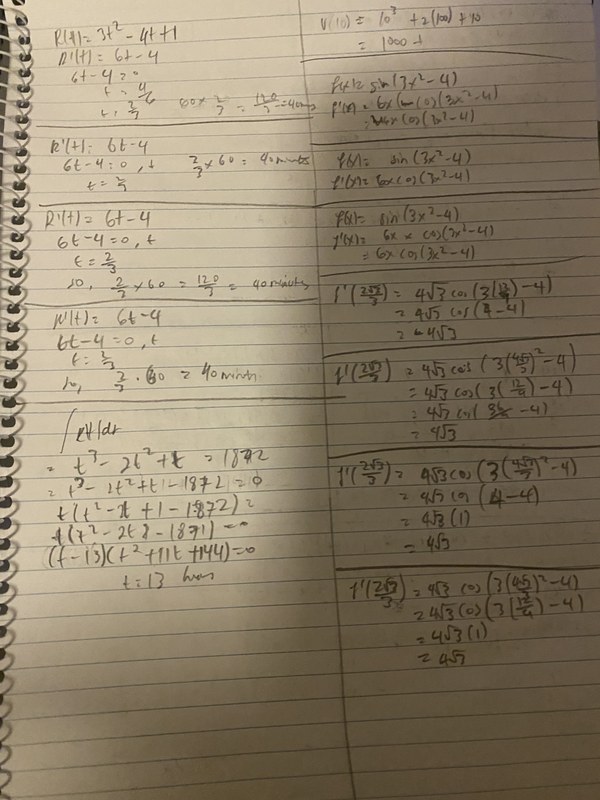 R(t) = 3t² - 4t + 1
R'(t) = 6t - 4
6t - 4 = 0
t = 4/6
t = 2/3 60 × 2/3 = 120/3 = 40 mins
R'(t) = 6t - 4
6t - 4 = 0, t 2/3 × 60 = 40 minutes
t = 2/3
R'(t) = 6t - 4
6t - 4 = 0, t
t = 2/3
so, 2/3 × 60 = 120/3 = 40 minutes
R'(t) = 6t - 4
6t - 4 = 0, t
t = 2/3
so, 2/3 · 60 = 40 minutes
= t³ - 2t² + t = 1872
= t³ - 2t² + t - 1872 = 0
(t - 13)(t² + 11t + 144) = 0
t = 13 hours
V(10) = 10³ + 2(100) + 10
= 1000 +
f(x) = sin(3x² - 4)
f'(x) = 6x cos(3x² - 4)
cos(3x² - 4)
f(x) = sin(3x² - 4)
f'(x) = 6x cos(3x² - 4)
f(x) = sin(3x² - 4)
f'(x) = 6x × cos(3x² - 4)
= 6x cos(3x² - 4)
f'(2√3/3) = 4√3 cos(3(12/9) - 4)
= 4√3 cos(4 - 4)
= 4√3
f'(2√3/3) = 4√3 cos(3(2√3/3)² - 4)
= 4√3 cos(3(12/9) - 4)
= 4√3 cos( - 4)
= 4√3
f'(2√3/3) = 4√3 cos(3(2√3/3)² - 4)
= 4√3 cos(4 - 4)
= 4√3 (1)
= 4√3
f'(2√3/3) = 4√3 cos(3(2√3/3)² - 4)
= 4√3 cos(3(12/9) - 4)
= 4√3 (1)
= 4√3